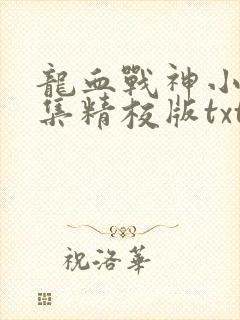 龍血戰神小
集精校版txt
祝洛華